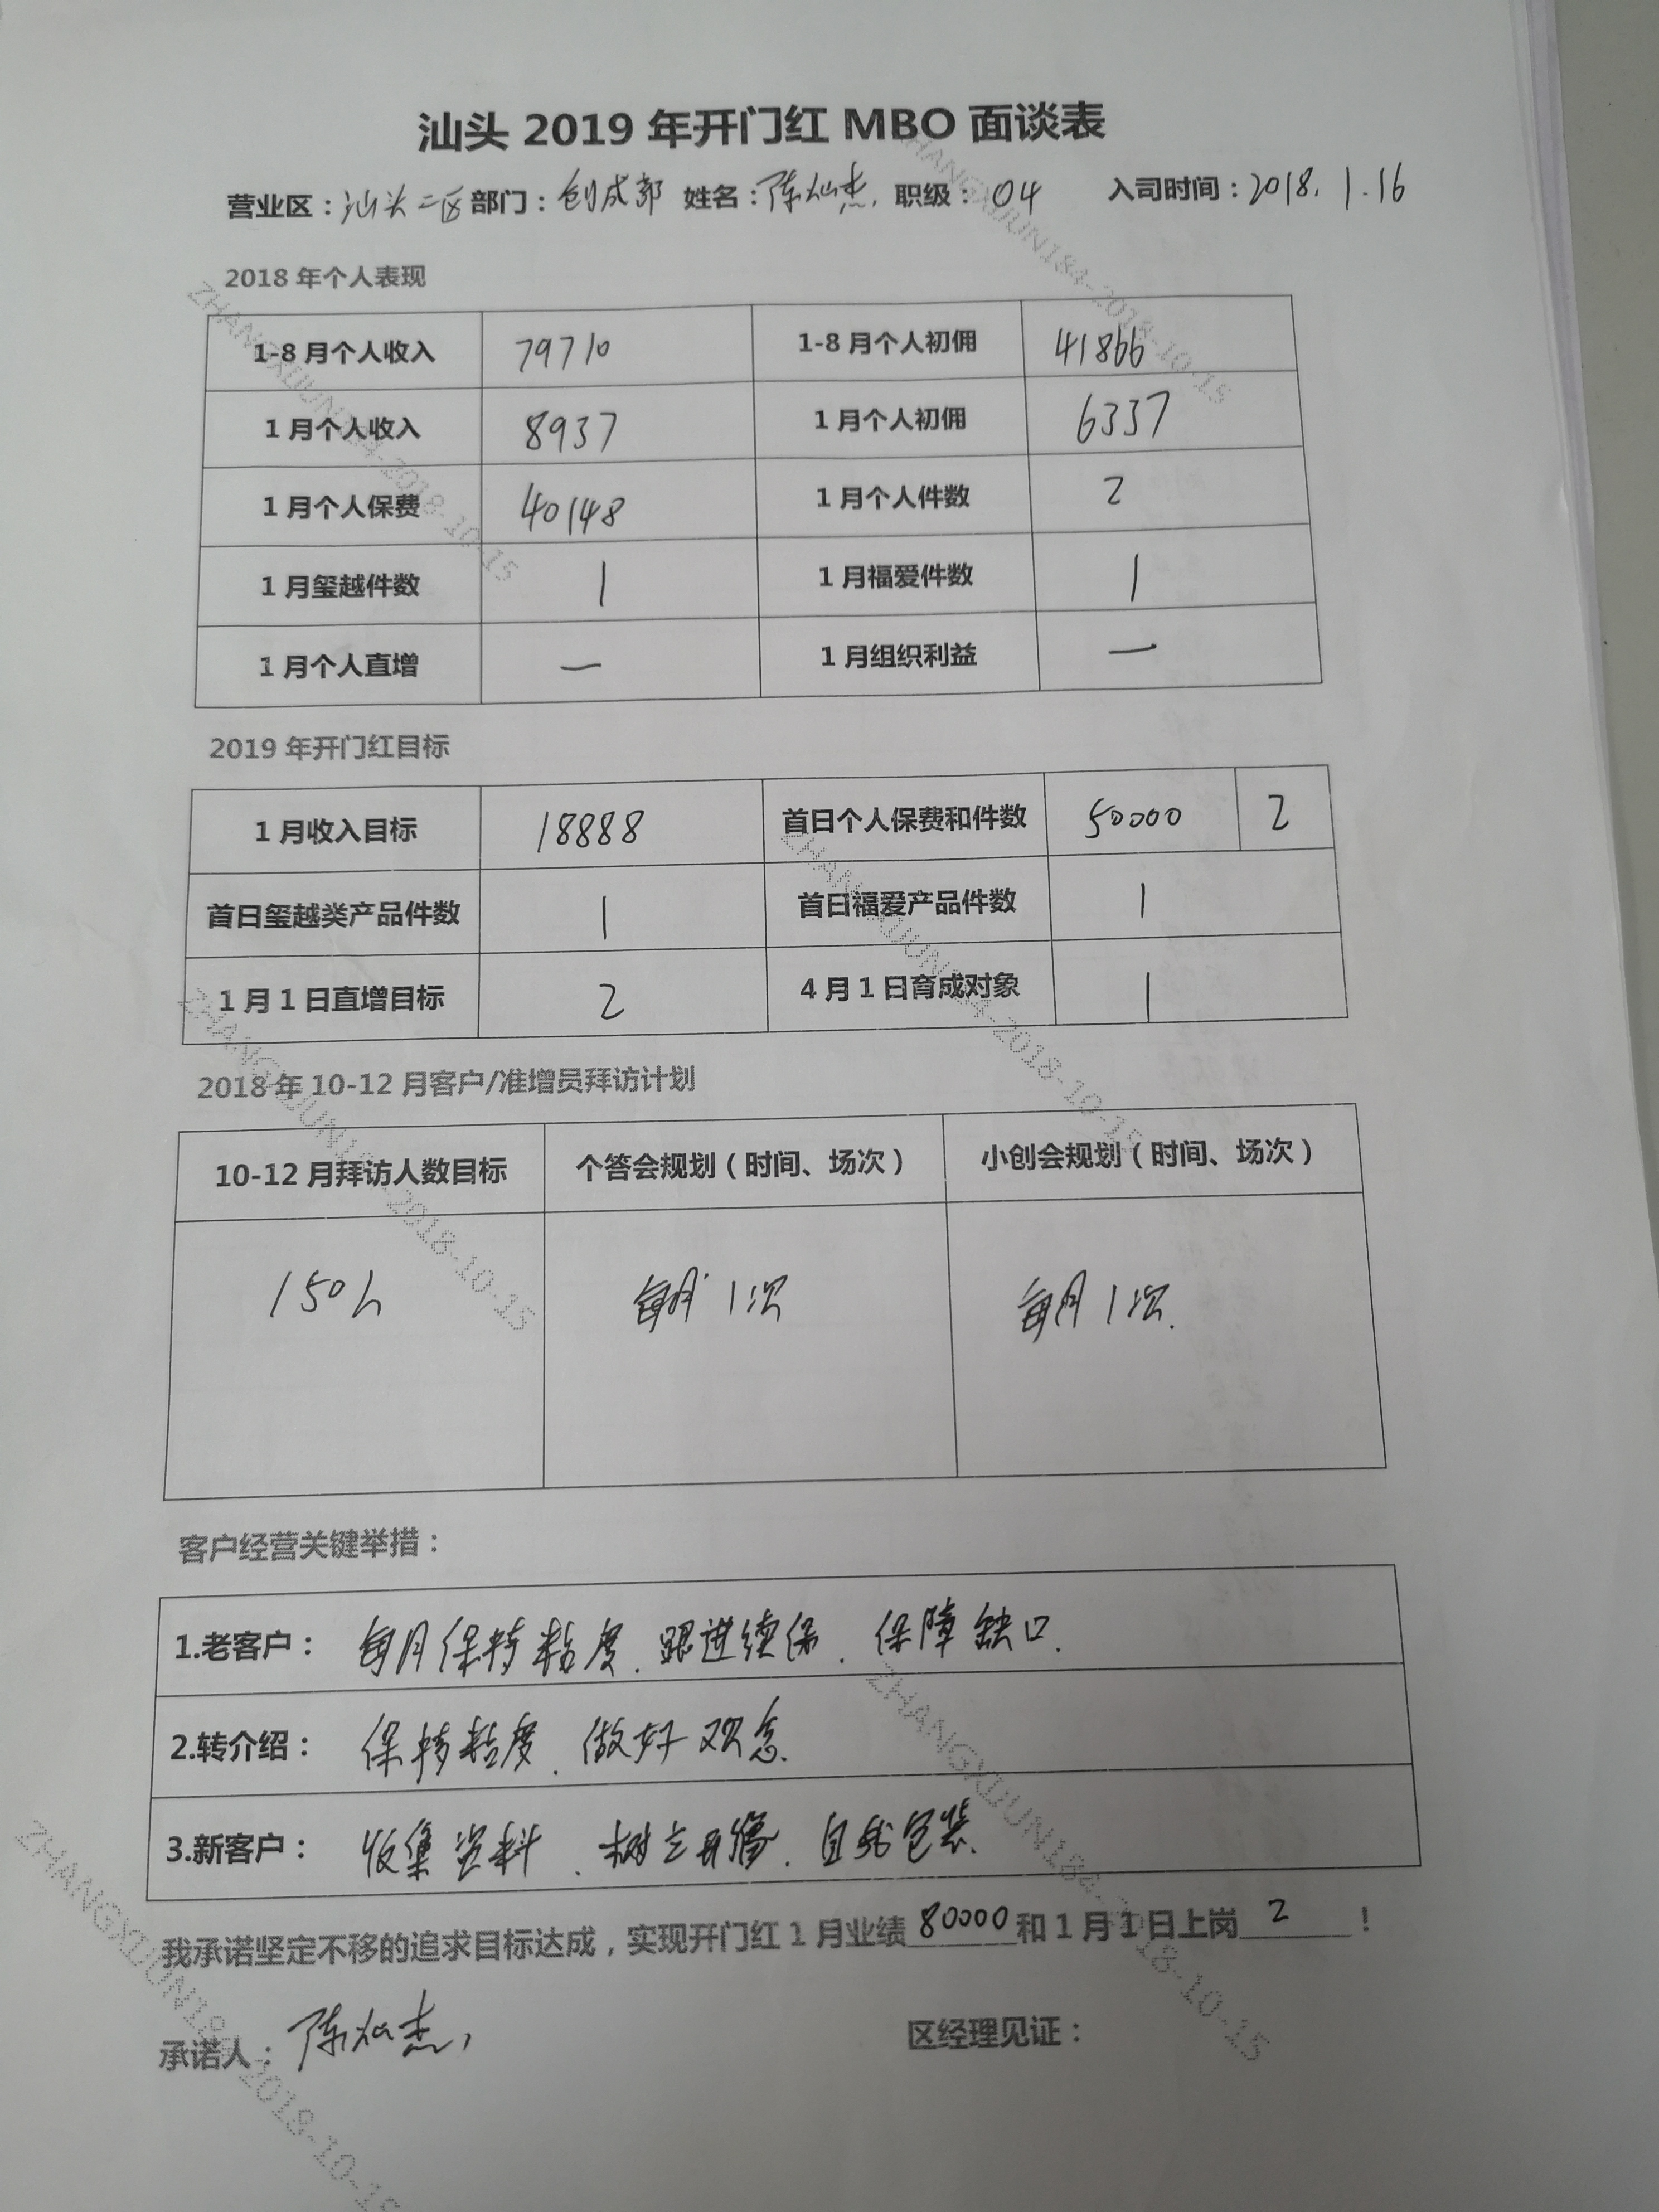 汕头 2019 年开门红 MBO 面谈表
营业区：汕头二区 部门：创成部 姓名：陈灿杰. 职级：04 入司时间：2018.1.16
2018 年个人表现
1-8 月个人收入 79710 1-8 月个人初佣 41866
1 月个人收入 8937 1 月个人初佣 6337
1 月个人保费 40148 1 月个人件数 2
1 月玺越件数 1 1 月福爱件数 1
1 月个人直增 — 1 月组织利益 —
2019 年开门红目标
1 月收入目标 18888 首日个人保费和件数 50000 2
首日玺越类产品件数 1 首日福爱产品件数 1
1 月 1 日直增目标 2 4 月 1 日育成对象 1
2018 年 10-12 月客户/准增员拜访计划
10-12 月拜访人数目标 个答会规划（时间、场次） 小创会规划（时间、场次）
150人 每月1次 每月1次.
客户经营关键举措：
1.老客户： 每月保持粘度、跟进续保、保障缺口.
2.转介绍： 保持粘度、做好观念.
3.新客户： 收集资料、树立形象、自我包装.
我承诺坚定不移的追求目标达成，实现开门红 1 月业绩 80000 和 1 月 1 日上岗 2 ！
承诺人：陈灿杰, 区经理见证：
ZHANGXIJUN184-2018-10-15
ZHANGXIJUN184-2018-10-15
ZHANGXIJUN184-2018-10-15
ZHANGXIJUN184-2018-10-15
ZHANGXIJUN184-2018-10-15
ZHANGXIJUN184-2018-10-15